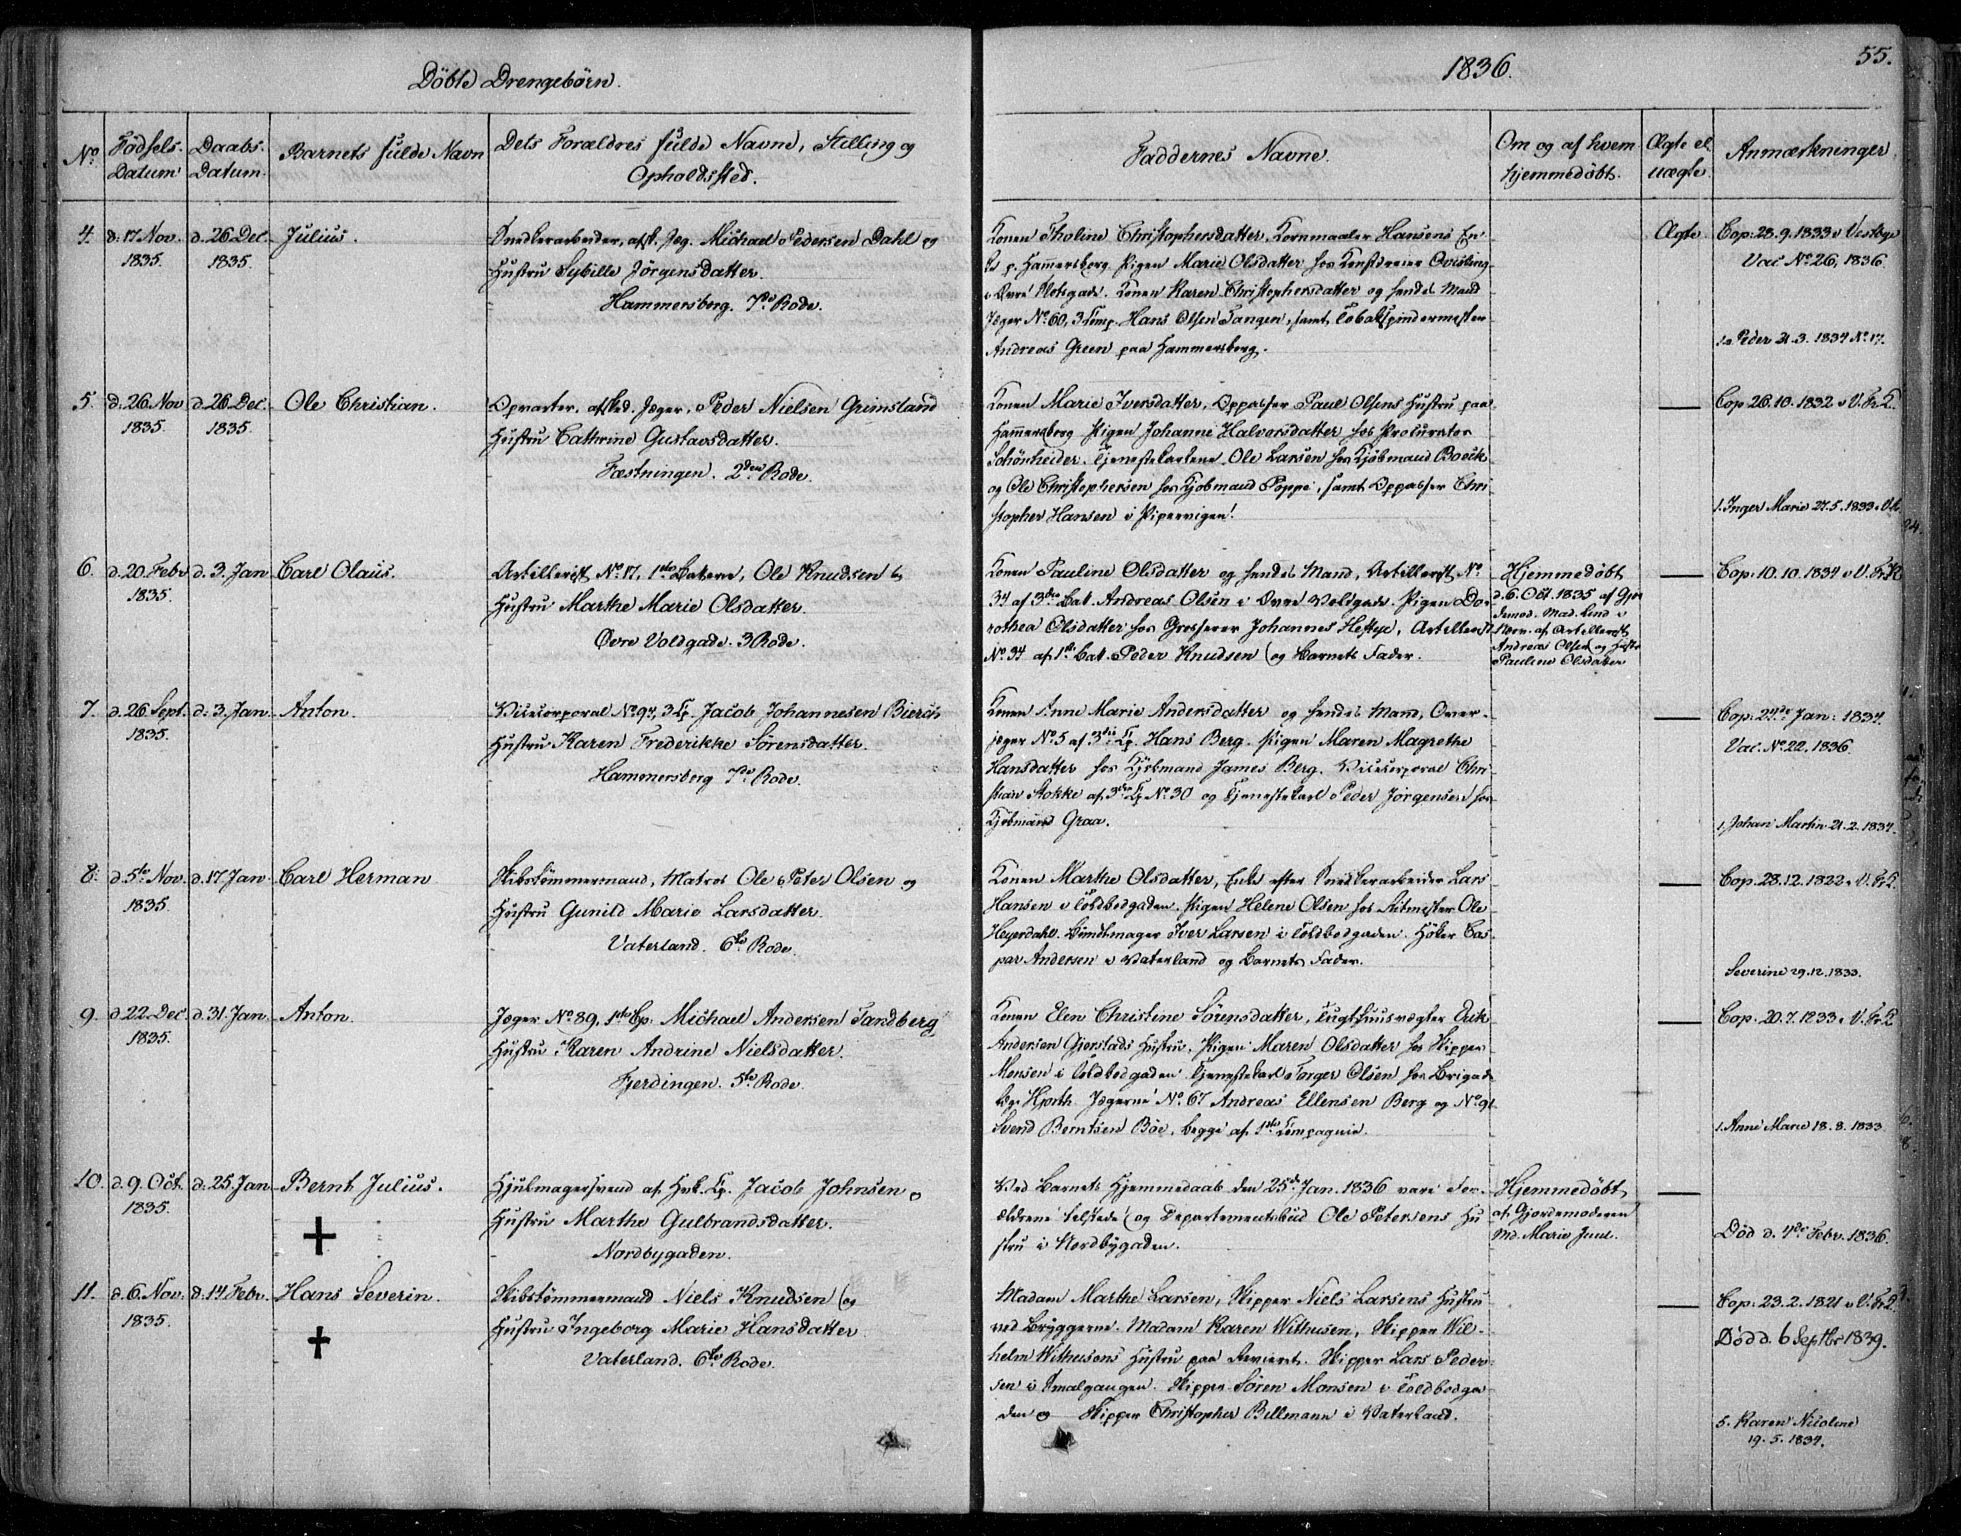 Döbte Drengebörn.
1836.
55.
No.
Födsels Datum
Daabs Datum.
Barnets fulde Navn
Dets Forældres fulde Navne, Stilling og Opholdssted.
Faddernes Navne.
Om og af hvem hjemmedöbt.
Ægte el. uægte.
Anmærkninger
4.
d. 17 Nov. 1835.
d. 26 Dec. 1835.
Julius.
Snedkerarbeider, afsk. Jæg. Michael Pedersen Dahl og
Hustru Sybille Jørgensdatter.
Hammersborg. 7de Rode.
Konen Tholine Christophersdatter, Kornmaaler Hansens En-
ke p. Hammersborg. Pigen Marie Olsdatter hos Qvisling
i Øvre Slotsgade. Konen Karen Christophersdatter og hendes Mand
Jæger No. 60, 3 Comp. Hans Olsen Tangen, samt Tobakspindermester
Andreas Green paa Hammersborg.
Ægte
Cop. 28.9.1833
Vac No. 26, 1836.
Peder 21.3.1834 No. 17.
5.
d. 26 Nov 1835.
d. 26 Dec. 1835.
Ole Christian.
Opvarter, afsked. Jæger, Peder Nielsen Grimsland
Hustru Cathrine Gustavsdatter.
Fæstningen. 2den Rode.
Konen Marie Iversdatter, Oppasser Paul Olsens Hustru paa
Hammersborg. Pigen Johanne Halvorsdatter hos Procurator
Schönheider. Tjenestekarlene Ole Larsen hos Kjöbmand Boeck
og Ole Christophersen hos Kjöbmand Poppe, samt Oppasser Chri-
stopher Hansen i Pipervigen.
—
Cop. 26.10.1832 i V. Fr. K.
1. Inger Marie 27.5.1833
6.
d. 20. Febr 1835.
d. 3. Jan
Carl Olaus.
Artillerist No. 17, 1ste Batterie, Ole Knudsen &
Hustru Marthe Marie Olsdatter.
Øvre Voldgade. 3 Rode.
Konen Pauline Olsdatter og hendes Mand, Artillerist No.
34 af 3die Bat. Andreas Olsen i Øvre Voldgade. Pigen Do-
rothea Olsdatter hos Grosserer Johannes Heftye, Artillerist
No. 34 af 1ste Bat. Peder Knudsen og Barnets Fader.
Hjemmedöbt
d. 6. Oct. 1835 af Gjor
demod. Mad. Lind i
Nærv. af Artillerist
Andreas Olsen og Hustr
Pauline Olsdatter
—
Cop. 10.10.1834 i V. Fr. K
7.
d. 26 Sept. 1835.
d. 3. Jan
Anton.
Vicecorporal No. 94, 3 Cp. Jacob Johannesen Bierch
Hustru Karen Frederikke Sörensdatter.
Hammersborg 7de Rode.
Konen Anne Marie Andersdatter og hendes Mand, Over-
jæger No. 5 af 3die Cp. Hans Berg. Pigen Maren Magrethe
Hansdatter hos Kjöbmand James Berg. Vicecorporal Chri-
stian Stokke af 3die Cp. No. 30 og Tjenestekarl Peder Jørgensen hos
Kjöbmand Graa.
—
Cop. 24de Jan: 1834.
Vac. No. 22, 1836.
1. Johan Martin 21.2.1834.
8.
d. 5te Nov. 1835.
d. 17 Jan
Carl Herman
Skibstömmermand, Matros Ole Peter Olsen og
Hustru Gunild Marie Larsdatter.
Vaterland. 6te Rode.
Konen Marthe Olsdatter, Enke efter Snedkerarbeider Lars
Hansen i Toldbodgaden. Pigen Helene Olsen hos Ritmester Ole
Heyerdahl. Bundtmager Iver Larsen i Toldbodgaden. Höker Cas-
par Andersen i Vaterland og Barnets Fader.
—
Cop. 28.12.1822 i V. Fr. K.
Severine 29.12.1833.
9.
d. 22 Dec. 1835.
d. 31. Jan
Anton.
Jæger No. 89, 1ste Cp. Michael Andersen Tandberg
Hustru Karen Andrine Nielsdatter.
Fjerdingen. 5te Rode.
Konen Elen Christine Sörensdatter, Tugthuusvægter Erik
Andersen Gjerstads Hustru. Pigen Maren Olsdatter hos Skipper
Monsen i Toldbodgaden. Tjenestekarl Torger Olsen hos Brigade
Hjorth. Jægerne No. 67 Andreas Ellensen Berg og No. 91
Svend Berntsen Böe, begge af 1ste Compagnie.
—
Cop. 20.7.1833 i V. Fr. K
1. Anne Marie 18.8.1833
10.
d. 9. Oct. 1835.
d. 25 Jan
Bernt Julius.
Hjulmagersvend af Hvk. Cp. Jacob Johnsen og
Hustru Marthe Gulbrandsdatter.
Nordbygaden.
Ved Barnets Hjemmedaab den 25de Jan. 1836 vare For-
ældrene tilstede og Departementsbud Ole Petersens Hu
stru i Nordbygaden.
Hjemmedöbt
af Gjordemoderen
Md. Marie Juul.
—
Död d. 4de Febr. 1836.
11.
d. 6. Nov. 1835.
d. 14 Febr.
Hans Severin.
Skibstömmermand Niels Knudsen og
Hustru Ingeborg Marie Hansdatter
Vaterland. 6te Rode.
Madam Marthe Larsen, Skipper Niels Larsens Hustru
ved Bryggerne. Madam Karen Withusen, Skipper Wil-
helm Withusens Hustru paa Revieret. Skipper Lars Peder-
sen i Smalgangen. Skipper Sören Monsen i Toldbodga
den og Skipper Christopher Bullmann i Vaterland.
—
Cop. 23.2.1821 i V. Fr. K.
Död d. 6 Septbr 1839.
5. Karen Nicoline
19.5.1834.